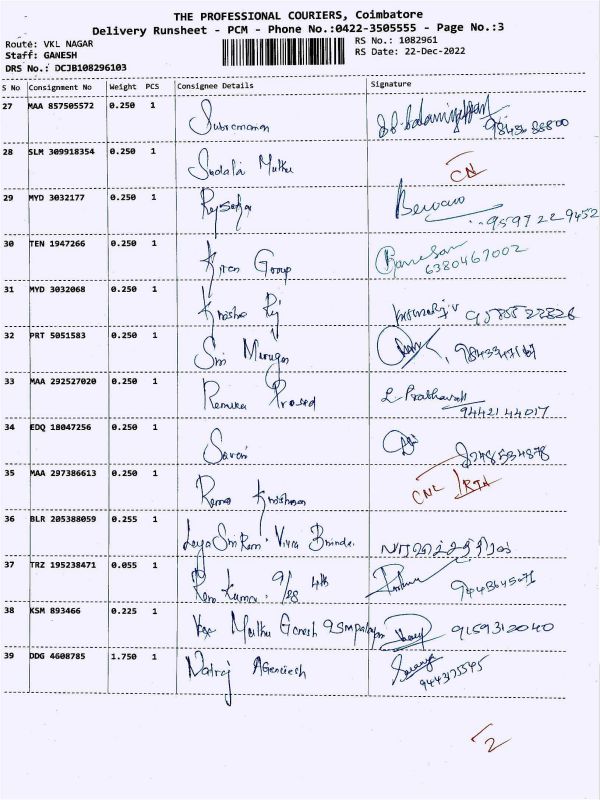 THE PROFESSIONAL COURIERS, Coimbatore
Delivery Runsheet - PCM - Phone No.:0422-3505555 - Page No.:3
Route: VKL NAGAR
RS No.: 1082961
Staff: GANESH
RS Date: 22-Dec-2022
DRS No.: DCJB108296103
S No Consignment No Weight PCS Consignee Details Signature
27 MAA 857505572 0.250 1 Subramanian
28 SLM 309918354 0.250 1 Sudalai Muthu CN
29 MYD 3032177 0.250 1 Rajsekar
9597229452
30 TEN 1947266 0.250 1 Kiran Group
6380467002
31 MYD 3032068 0.250 1 Krishna Raj 9585522826
32 PRT 5051583 0.250 1 Sri Murugan
33 MAA 292527020 0.250 1 Renuka Prasad L Prabhavathi
9442144017
34 EDQ 18047256 0.250 1 Savan
8248534878
35 MAA 297386613 0.250 1 Rama Krishnan CNL
36 BLR 205388059 0.255 1
37 TRZ 195238471 0.055 1 Ram Kumar. 9/28 4th
9443645071
38 KSM 893466 0.225 1 Muthu Ganesh 9159312040
39 DDG 4608785 1.750 1 Natraj Agenciesh Saranya
944375545
2